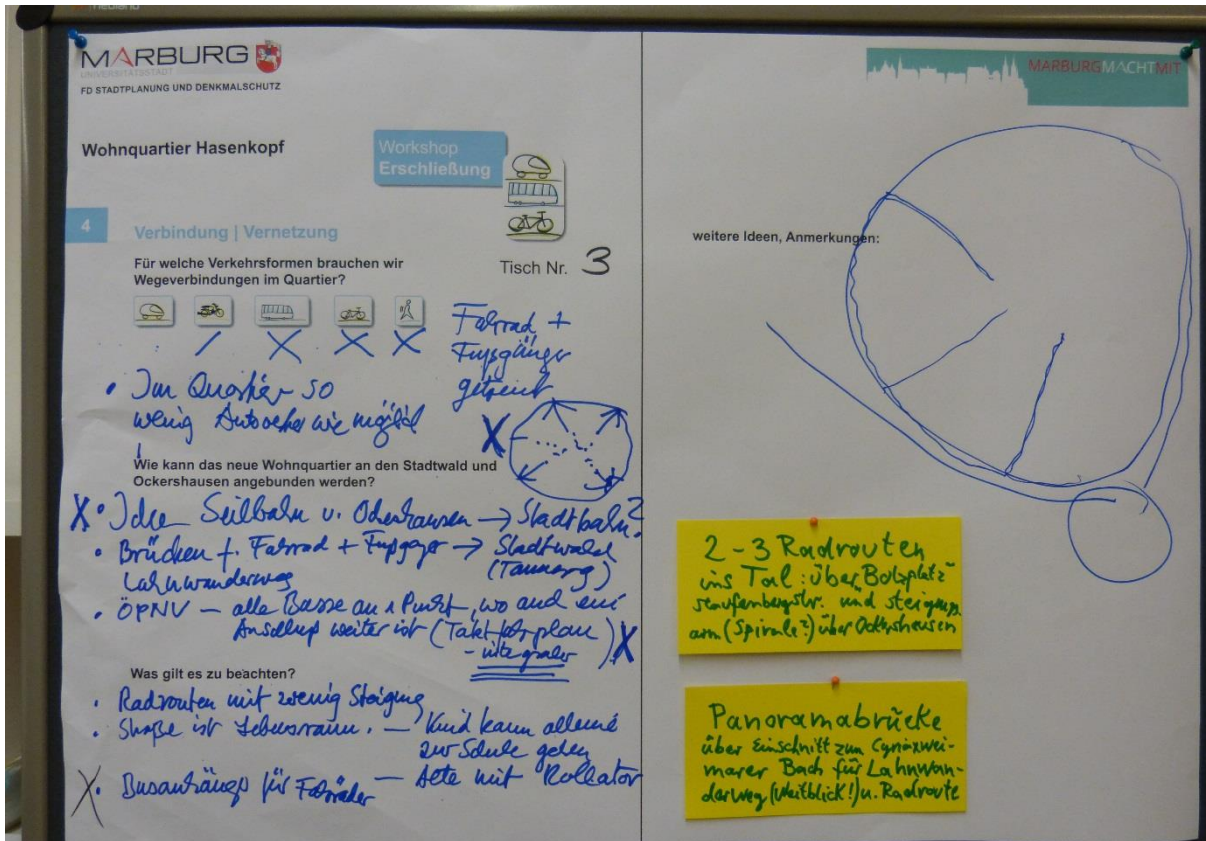 neuland
MARBURG
UNIVERSITÄTSSTADT
FD STADTPLANUNG UND DENKMALSCHUTZ
MARBURGMACHTMIT
Wohnquartier Hasenkopf
Workshop
Erschließung
4
Verbindung | Vernetzung
Für welche Verkehrsformen brauchen wir
Wegeverbindungen im Quartier?
Tisch Nr. 3
/ X X X
Fahrrad +
Fußgänger
getrennt
• Im Quartier so
wenig Autoverkehr wie möglich
X
Wie kann das neue Wohnquartier an den Stadtwald und
Ockershausen angebunden werden?
X • Idee Seilbahn v. Ockershausen → Stadtbahn?
• Brücken f. Fahrrad + Fußgänger → Stadtwald
Lahnwanderweg
• ÖPNV – alle Busse an 1 Punkt, wo auch ein
Anschluß weiter ist (Taktfahrplan
- integraler) X
Was gilt es zu beachten?
• Radrouten mit wenig Steigung
• Straße ist Lebensraum. – Kind kann alleine
zur Schule gehen
X • Busanhänger für Fahrräder – Alte mit Rollator
weitere Ideen, Anmerkungen:
2 - 3 Radrouten
ins Tal: über Bolzplatz
und steigungs
arm (Spirale?) über Ockershausen
Panoramabrücke
über Einschnitt zum Cyriaxwei-
marer Bach für Lahnwan-
derweg (Weitblick!) u. Radroute